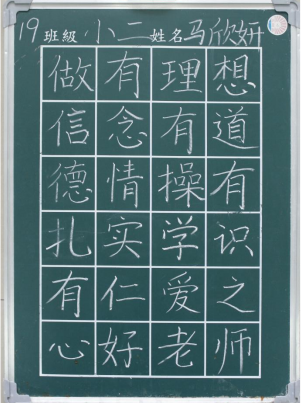 19 班級 小二 姓名 马欣妍
做有理想
信念有道
德情操有
扎实学识
有仁爱之
心好老师